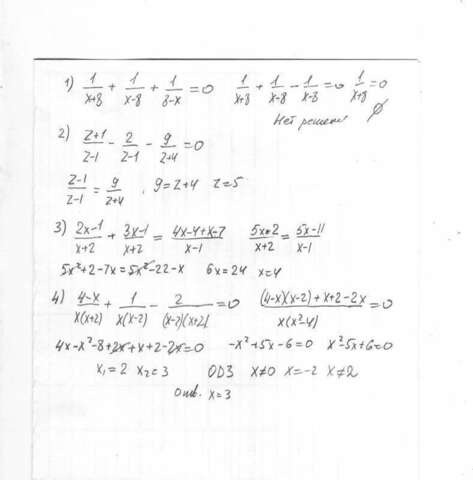 1) 1/(x+8) + 1/(x-8) + 1/(8-x) = 0   1/(x+8) + 1/(x-8) - 1/(x-8) = 0   1/(x+8) = 0
Нет решений ∅
2) (z+1)/(z-1) - 2/(z-1) - 9/(z+4) = 0
(z-1)/(z-1) = 9/(z+4) , 9=z+4   z=5
3) (2x-1)/(x+2) + (3x-1)/(x+2) = (4x-4+x-7)/(x-1)   (5x-2)/(x+2) = (5x-11)/(x-1)
5x²+2-7x=5x²-22-x   6x=24   x=4
4) (4-x)/(x(x+2)) + 1/(x(x-2)) - 2/((x-2)(x+2)) = 0   ((4-x)(x-2)+x+2-2x)/(x(x²-4)) = 0
4x-x²-8+2x+x+2-2x=0   -x²+5x-6=0   x²-5x+6=0
x₁=2   x₂=3   ОДЗ   x≠0   x=-2   x≠2
Отв. x=3